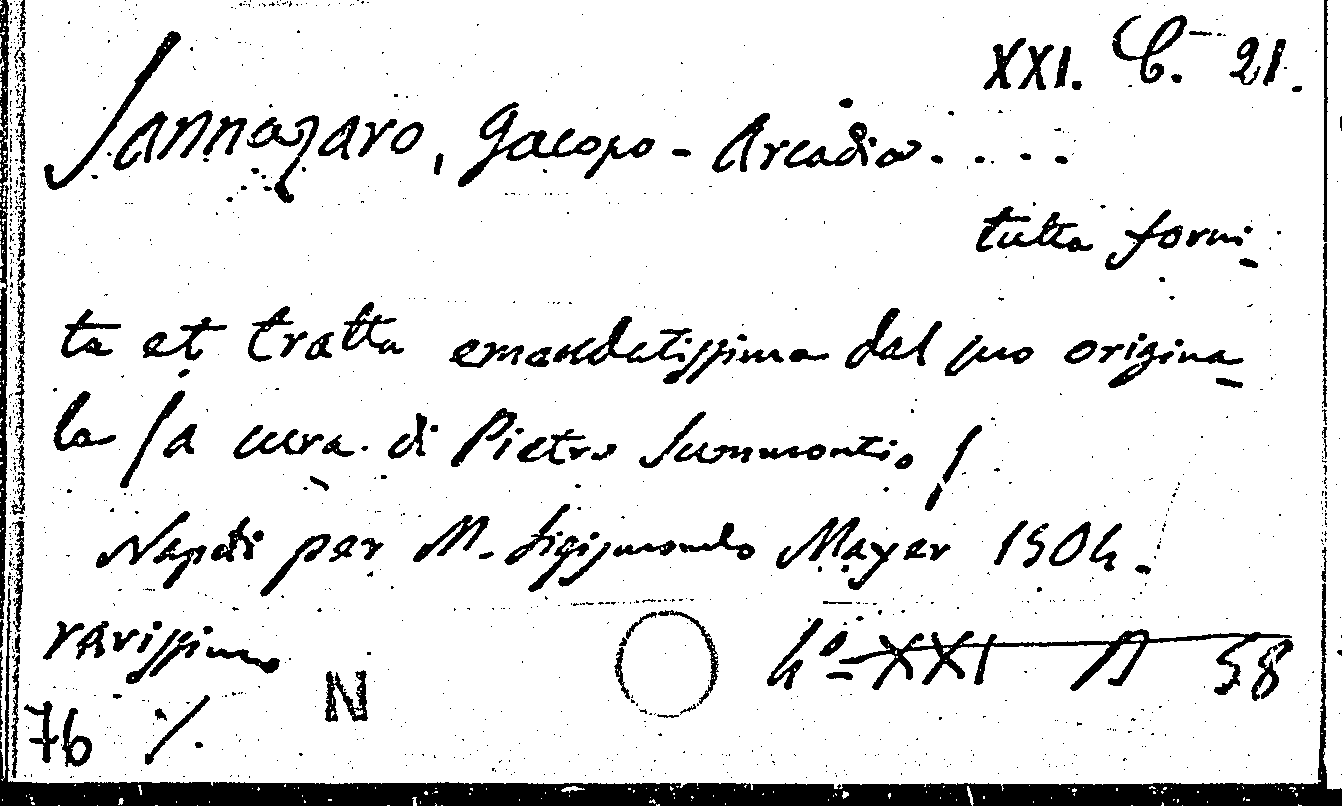 XXI. C. 21.
Sannazaro, Jacopo - Arcadia....
tutta forni-
ta et tratta emendatissima dal suo origina-
le / a cura di Pietro Summontio /
Napoli per M. Sigismondo Mayer 1504.
rarissimo 4º - XXI A 58
N
76 /.